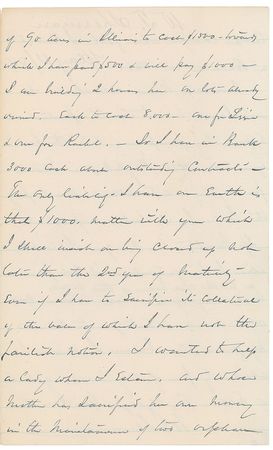 of 90 acres in Illinois to cost $1500 - towards
which I have paid $500 & will pay $1000 -
I am building 2 houses here on lots already
owned. Each to cost 8,000 - one for Lizzie
& one for Rachel. - So I have in Bank
3000 cash above outstanding Contracts -
The only liability I have on Earth is
that $1000. matter with you which
I shall insist on being closed up not
later than the 2nd year of Maturity
Even if I have to Sacrifice its collateral
of the value of which I have not the
faintest notion. I wanted to help
a Lady whom I Esteem, and whose
Mother has sacrificed her own Money
in the Maintenance of two orphan